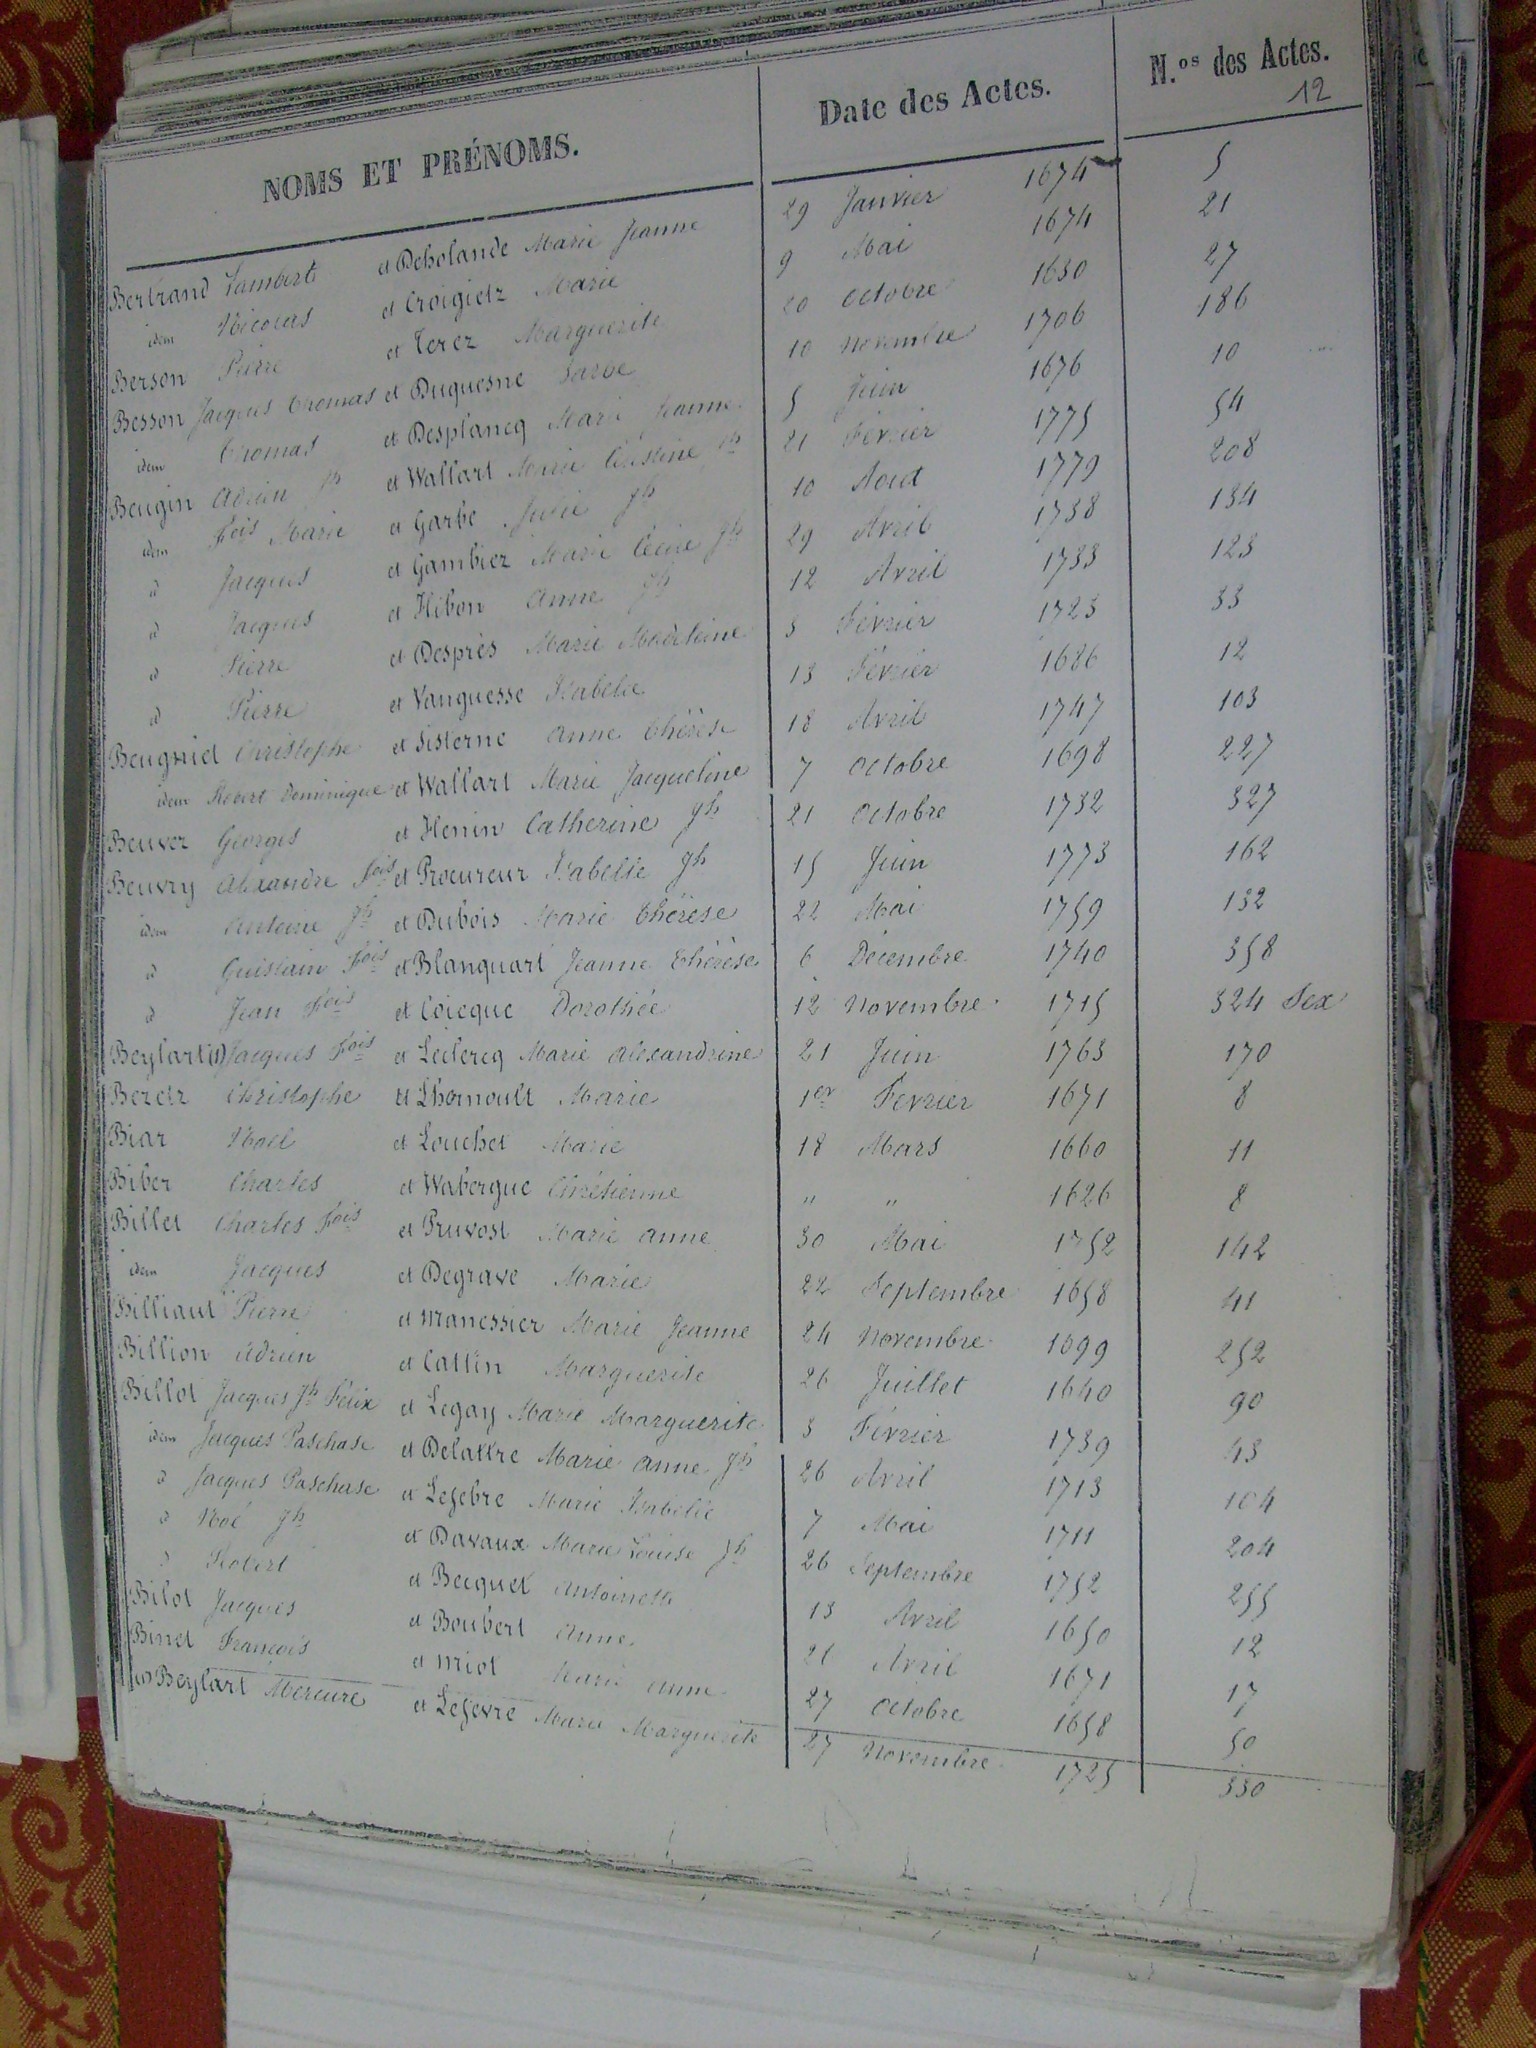 NOMS ET PRÉNOMS. Date des Actes. N.os des Actes.
12
Bertrand Lambert et Deholande Marie Jeanne 29 Janvier 1674 5
idem Nicolas et Croigietz Marie 9 Mai 1674 21
Berson Pierre et Terez Marguerite 20 Octobre 1630 27
Besson Jacques Thomas et Duquesne Barbe 10 Novembre 1706 186
idem Thomas et Desplancq Marie Jeanne 5 Juin 1676 10
Beugin Adrien Jh et Wallart Marie Christine Jh 21 Février 1775 54
idem Fois Marie et Garbe Julie Jh 10 Aout 1779 208
d Jacques et Gambiez Marie Cécile Jh 29 Avril 1738 134
d Jacques et Hibon Anne Jh 12 Avril 1733 123
d Pierre et Desprès Marie Madeleine 3 Février 1723 33
d Pierre et Vanguesse Isabelle 13 Février 1686 12
Beugniet Christophe et Sisterne Anne Thérèse 18 Avril 1747 103
idem Robert Dominique et Wallart Marie Jacqueline 7 Octobre 1698 227
Beuver Georges et Henin Catherine Jh 21 Octobre 1732 327
Beuvry Alexandre Fois et Procureur Isabelle Jh 15 Juin 1773 162
idem Antoine Jh et Dubois Marie Thérèse 22 Mai 1759 132
d Guislain Fois et Blanquart Jeanne Thérèse 6 Décembre 1740 358
d Jean Fois et Coicque Dorothée 12 Novembre 1715 324 Sex
Beylart (1) Jacques Fois et Leclercq Marie Alexandrine 21 Juin 1763 170
Bezetz Christophe et Lhomoult Marie 1er Fevrier 1671 8
Biar Noel et Louchet Marie 18 Mars 1660 11
Biber Charles et Wabergue Chrétienne " " 1626 8
Billet Charles Fois et Pruvost Marie Anne 30 Mai 1752 142
idem Jacques et Degrave Marie 22 Septembre 1658 41
Billiaut Pierre et Manessier Marie Jeanne 24 Novembre 1699 252
Billion Adrien et Cattin Marguerite 26 Juillet 1640 90
Billot Jacques Jh Félix et Legay Marie Marguerite 3 Février 1739 43
idem Jacques Paschase et Delattre Marie Anne Jh 26 Avril 1713 104
d Jacques Paschase et Lefebre Marie Isabelle 7 Mai 1711 204
d Noé Jh et Davaux Marie Louise Jh 26 Septembre 1752 255
d Robert et Becquet Antoinette 13 Avril 1650 12
Bilot Jacques et Boubert Anne 21 Avril 1671 17
Binet François et Miot Marie Anne 27 Octobre 1658 50
(1) Beylart Mercure et Lefevre Marie Marguerite 27 Novembre 1725 330